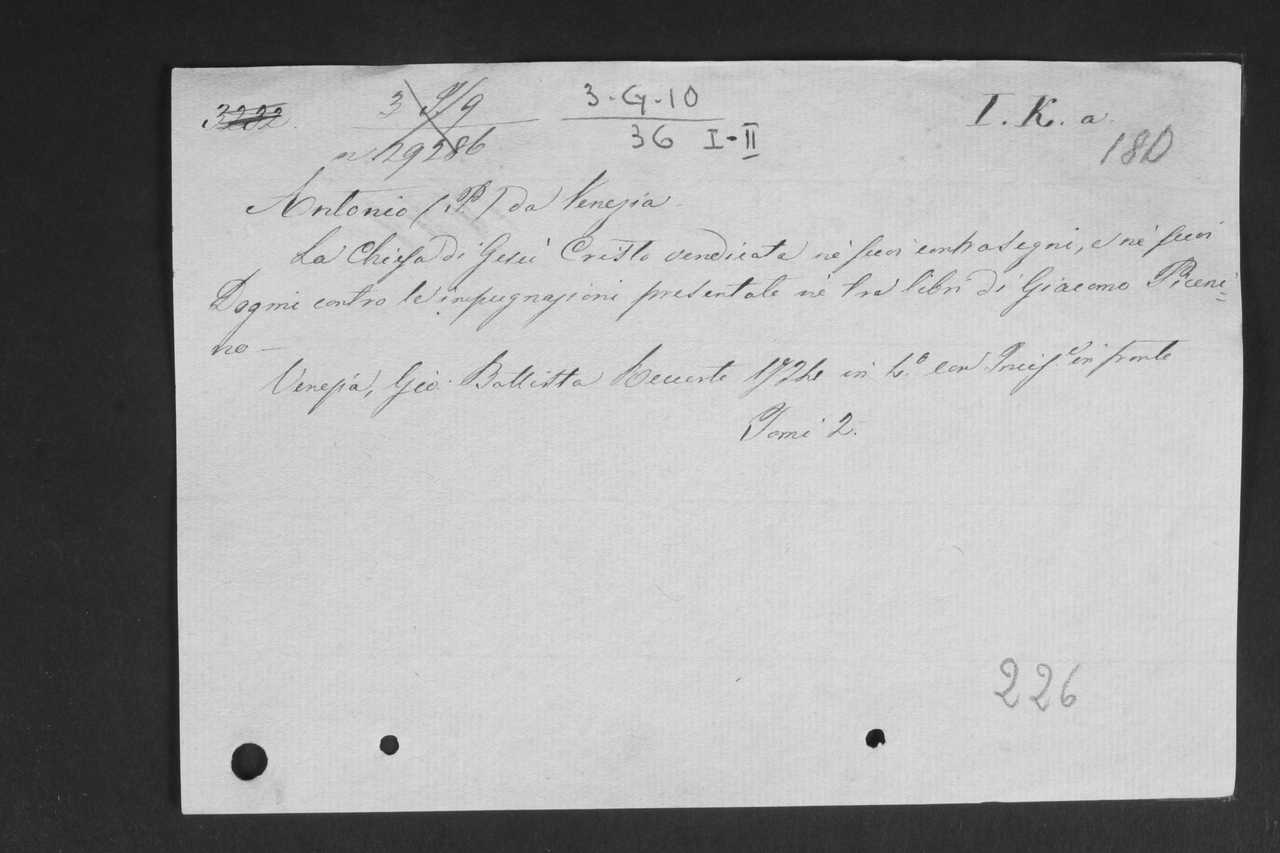 3232.
3 9/9
n 29286
3-G-10
36 I-II
I. K. a.
180
Antonio (P.) da Venezia.
La Chiesa di Gesù Cristo vendicata ne' suoi contrasegni, e ne' suoi
Dogmi contro le impugnazioni presentate ne' tre libri di Giacomo Piceni=
no —
Venezia, Gio: Battista Recurti 1724 in 4.° con Incis.e in fronte
Tomi 2.
226